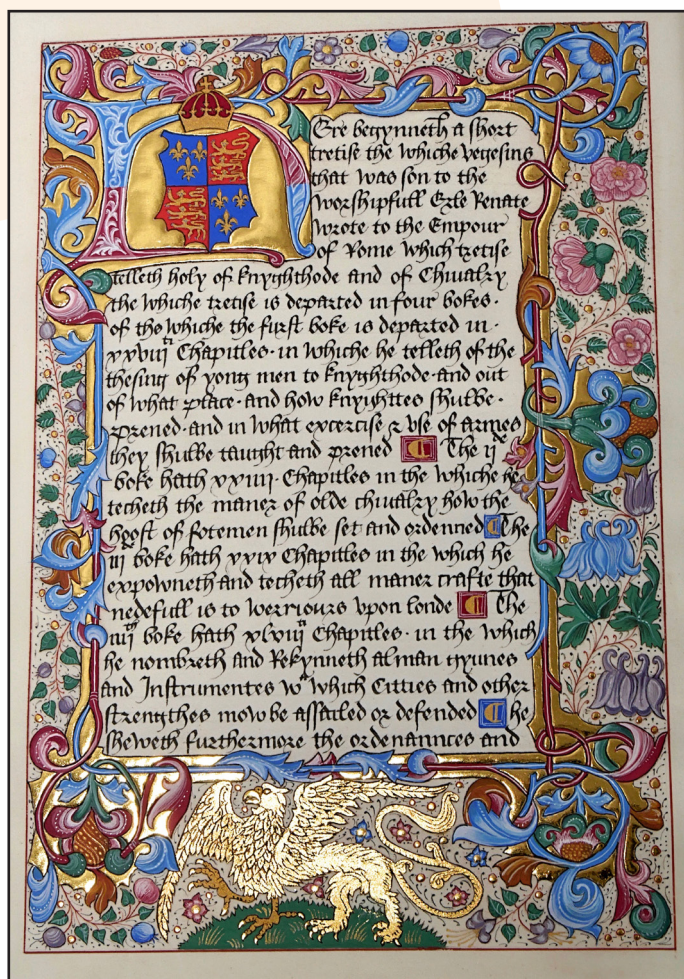 Here begynneth a short
tretise the whiche vegesins
that was son to the
worshipfull Erle Renate
wrote to the Empour
of Rome which tretise
telleth holy of knyghthode and of Chiualry
the whiche tretise is departed in four bokes·
of the whiche the furst boke is departed in·
xxviij ti Chapitles· in whiche he telleth of the
chesing of yong men to knyghthode·and out
of what place·and how knyghttes shulbe·
prened·and in what excercise & vse of armes
they shulbe taught and prened ¶ The ij de
boke hath xxiiij· Chapitles in the whiche he
techeth the maner of olde chiualry how the
hoost of fotemen shulbe set and ordenned ¶ The
iij boke hath xxix Chapitles in the which he
expowneth and techeth all maner crafte that
nedefull is to werriours vpon londe ¶ The
iiij th boke hath xlviij Chapitles· in the which
he nombreth and Rekynneth al man
and Instrumentes wt which Citties and other
strengthes mowbe assailed or defended ¶ he
sheweth furthermore the ordenannces and